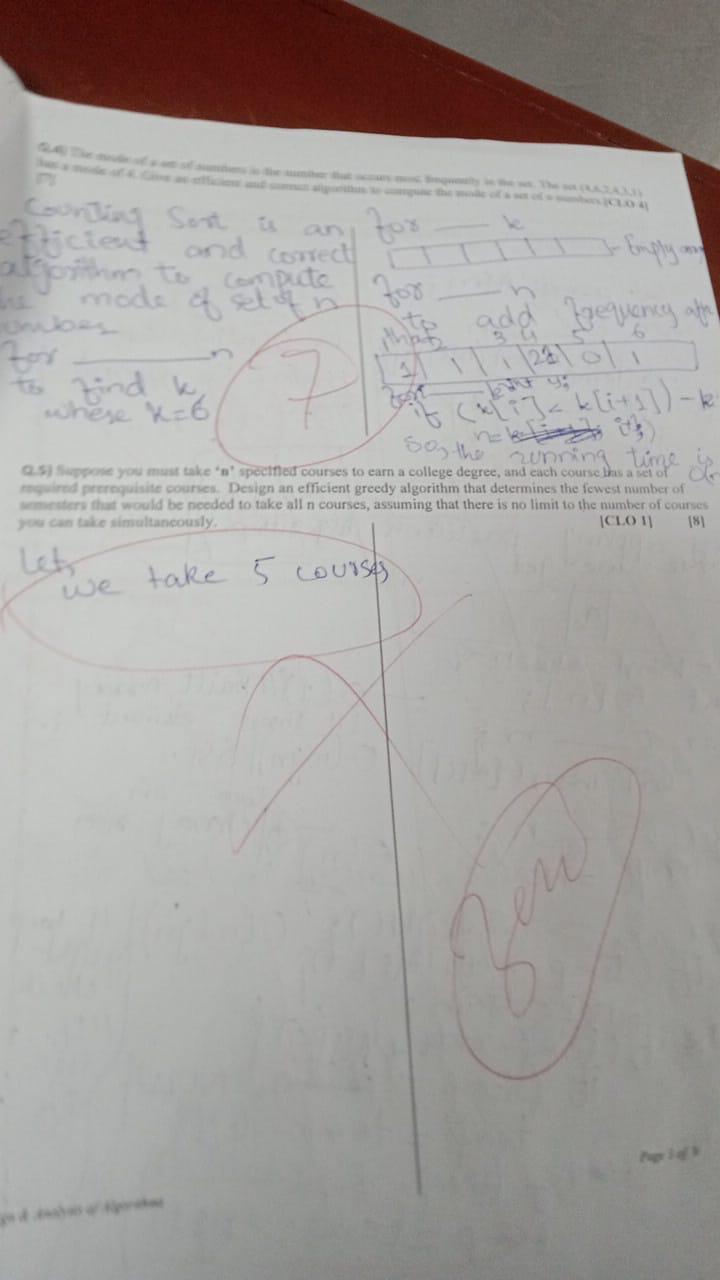 Q.4) The mode of a set of numbers is the number that occurs most frequently in the set. The set (4,6,2,4,3,1)
has a mode of 4. Give an efficient and correct algorithm to compute the mode of a set of n numbers. [CLO 4]
[7]
Counting Sort is an
efficient and correct
algorithm to compute
the mode of set of n
number
for n
to find k
where k=6
for k
Empty
for n
to add frequency
that
3 4 5 6
1 1 1 2 0 1
if (k[i] < k[i+1])
So, the running time is
7
Q.5) Suppose you must take 'n' specified courses to earn a college degree, and each course has a set of
required prerequisite courses. Design an efficient greedy algorithm that determines the fewest number of
semesters that would be needed to take all n courses, assuming that there is no limit to the number of courses
you can take simultaneously. [CLO 1] [8]
Let,
we take 5 courses
Zero
Analysis of Algorithms